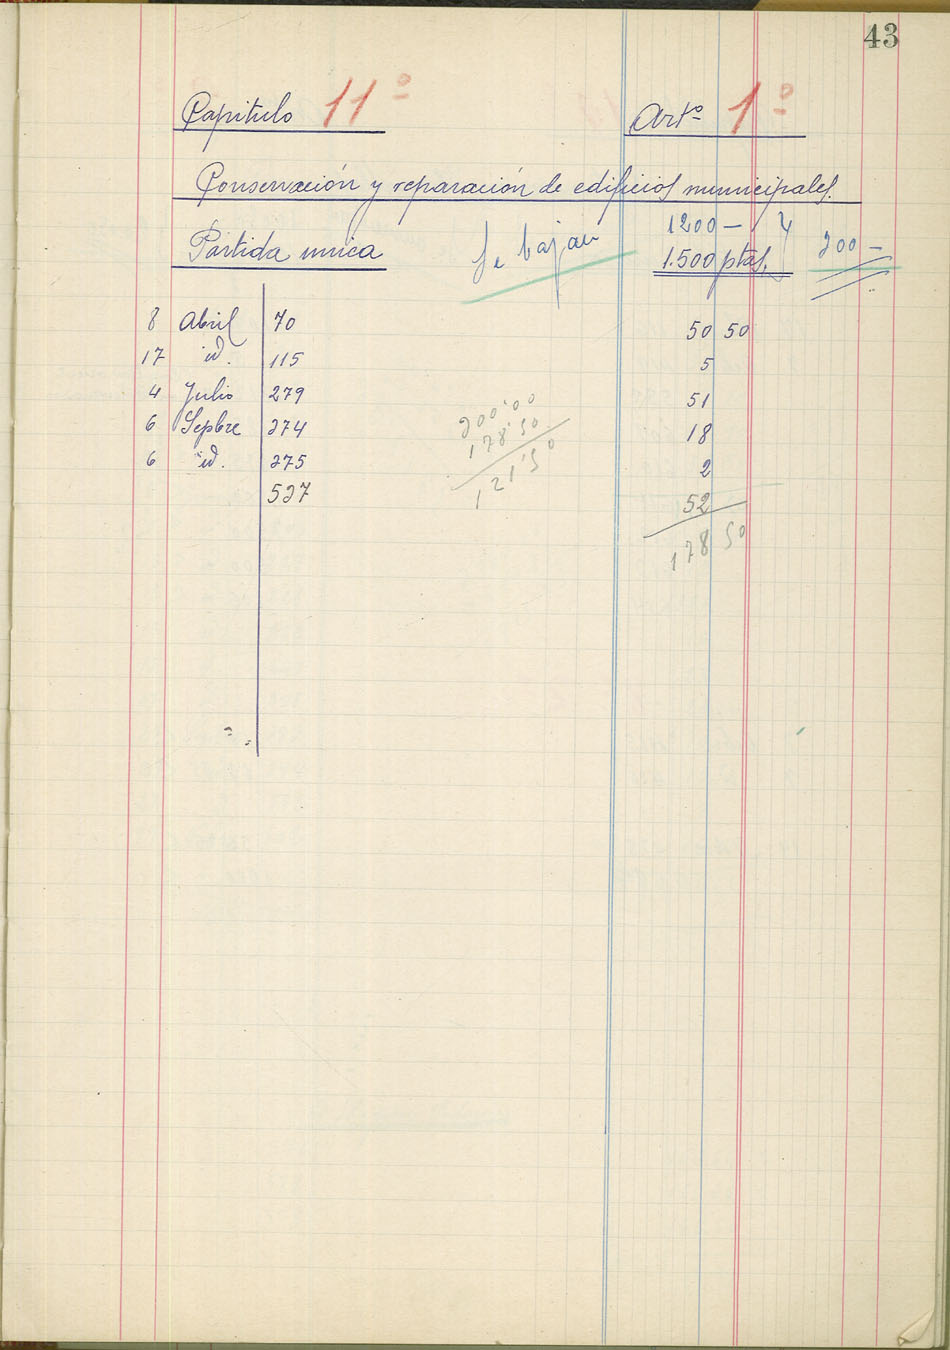 43
Capitulo 11º Artº 1º
Conservación y reparación de edificios municipales.
Partida unica Se bajan 1200 — 300 —
1.500 ptas.
8 Abril 70 50 50
17 id. 115 5
4 Julio 279 51
6 Sepbre 374 18
6 id. 375 2
527 52
178 50
300'00
178'50
121'50